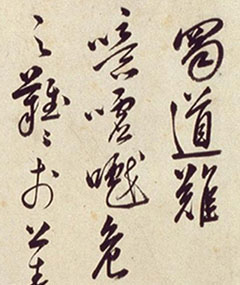 蜀道難
噫嘘嚱危
之難〻於上青